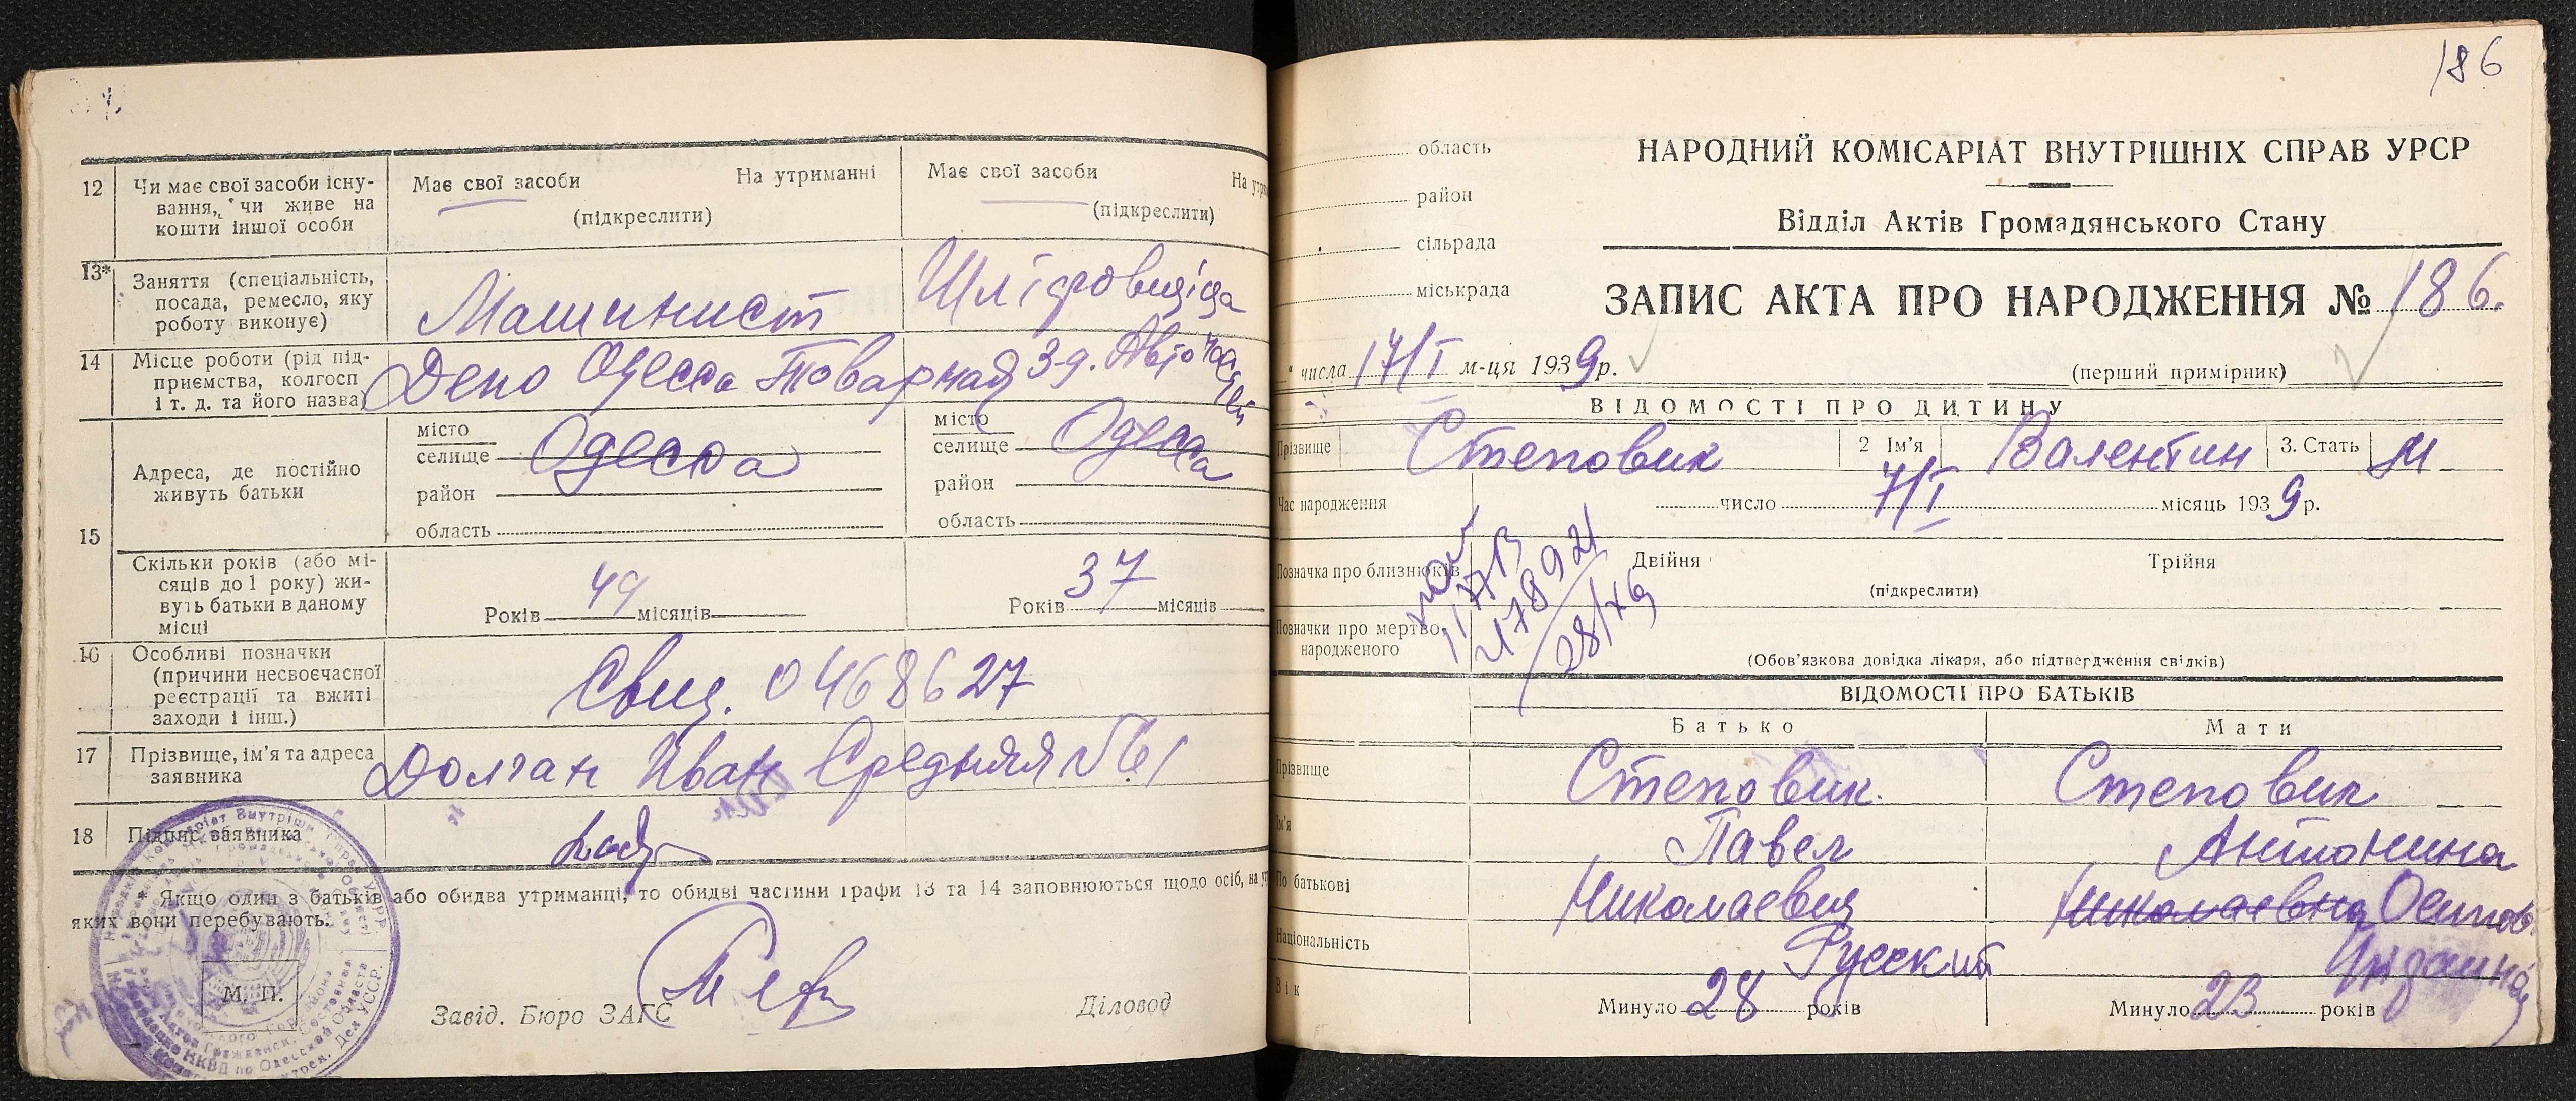 12
Чи має свої засоби існу-
вання, чи живе на
кошти іншої особи
Має свої засоби На утриманні
(підкреслити)
Має свої засоби На утри
(підкреслити)
13*
Заняття (спеціальність,
посада, ремесло, яку
роботу виконує)
Машинист
Шліфовщіца
14
Місце роботи (рід під-
приємства, колгосп
і т. д. та його назва)
Депо Одесса Товарная
Зд. Авто частей
15
Адреса, де постійно
живуть батьки
місто
селище Одесса
район
область
місто
селище Одесса
район
область
Скільки років (або мі-
сяців до 1 року) жи-
вуть батьки в даному
місці
Років місяців
Років 37 місяців
16
Особливі позначки
(причини несвоєчасної
реєстрації та вжиті
заходи і інш.)
Свид. 0468627
17
Прізвище, ім'я та адреса
заявника
Долган Иван Средняя № 61
18
Підпис заявника
* Якщо один з батьків або обидва утриманці, то обидві частини графи 13 та 14 заповнюються щодо осіб, на
яких вони перебувають.
М. П.
Завід. Бюро ЗАГС
Діловод
186
область
район
сільрада
міськрада
НАРОДНИЙ КОМІСАРІАТ ВНУТРІШНІХ СПРАВ УРСР
Відділ Актів Громадянського Стану
ЗАПИС АКТА ПРО НАРОДЖЕННЯ № 186.
" числа 17/I м-ця 1939 р.
(перший примірник)
ВІДОМОСТІ ПРО ДИТИНУ
Прізвище Степовик 2 Ім'я Валентин 3. Стать М
Час народження число 7/I місяць 1939 р.
Позначка про близнюків
Двійня Трійня
(підкреслити)
Позначки про мертво-
народженого
(Обов'язкова довідка лікаря, або підтвердження свідків)
ВІДОМОСТІ ПРО БАТЬКІВ
Батько Мати
Прізвище Степовик Степовик
Ім'я Павел Антонина
По батькові Николаевич Николаевна Осипов
Національність Русский
Вік Минуло 28 років Минуло 23 років